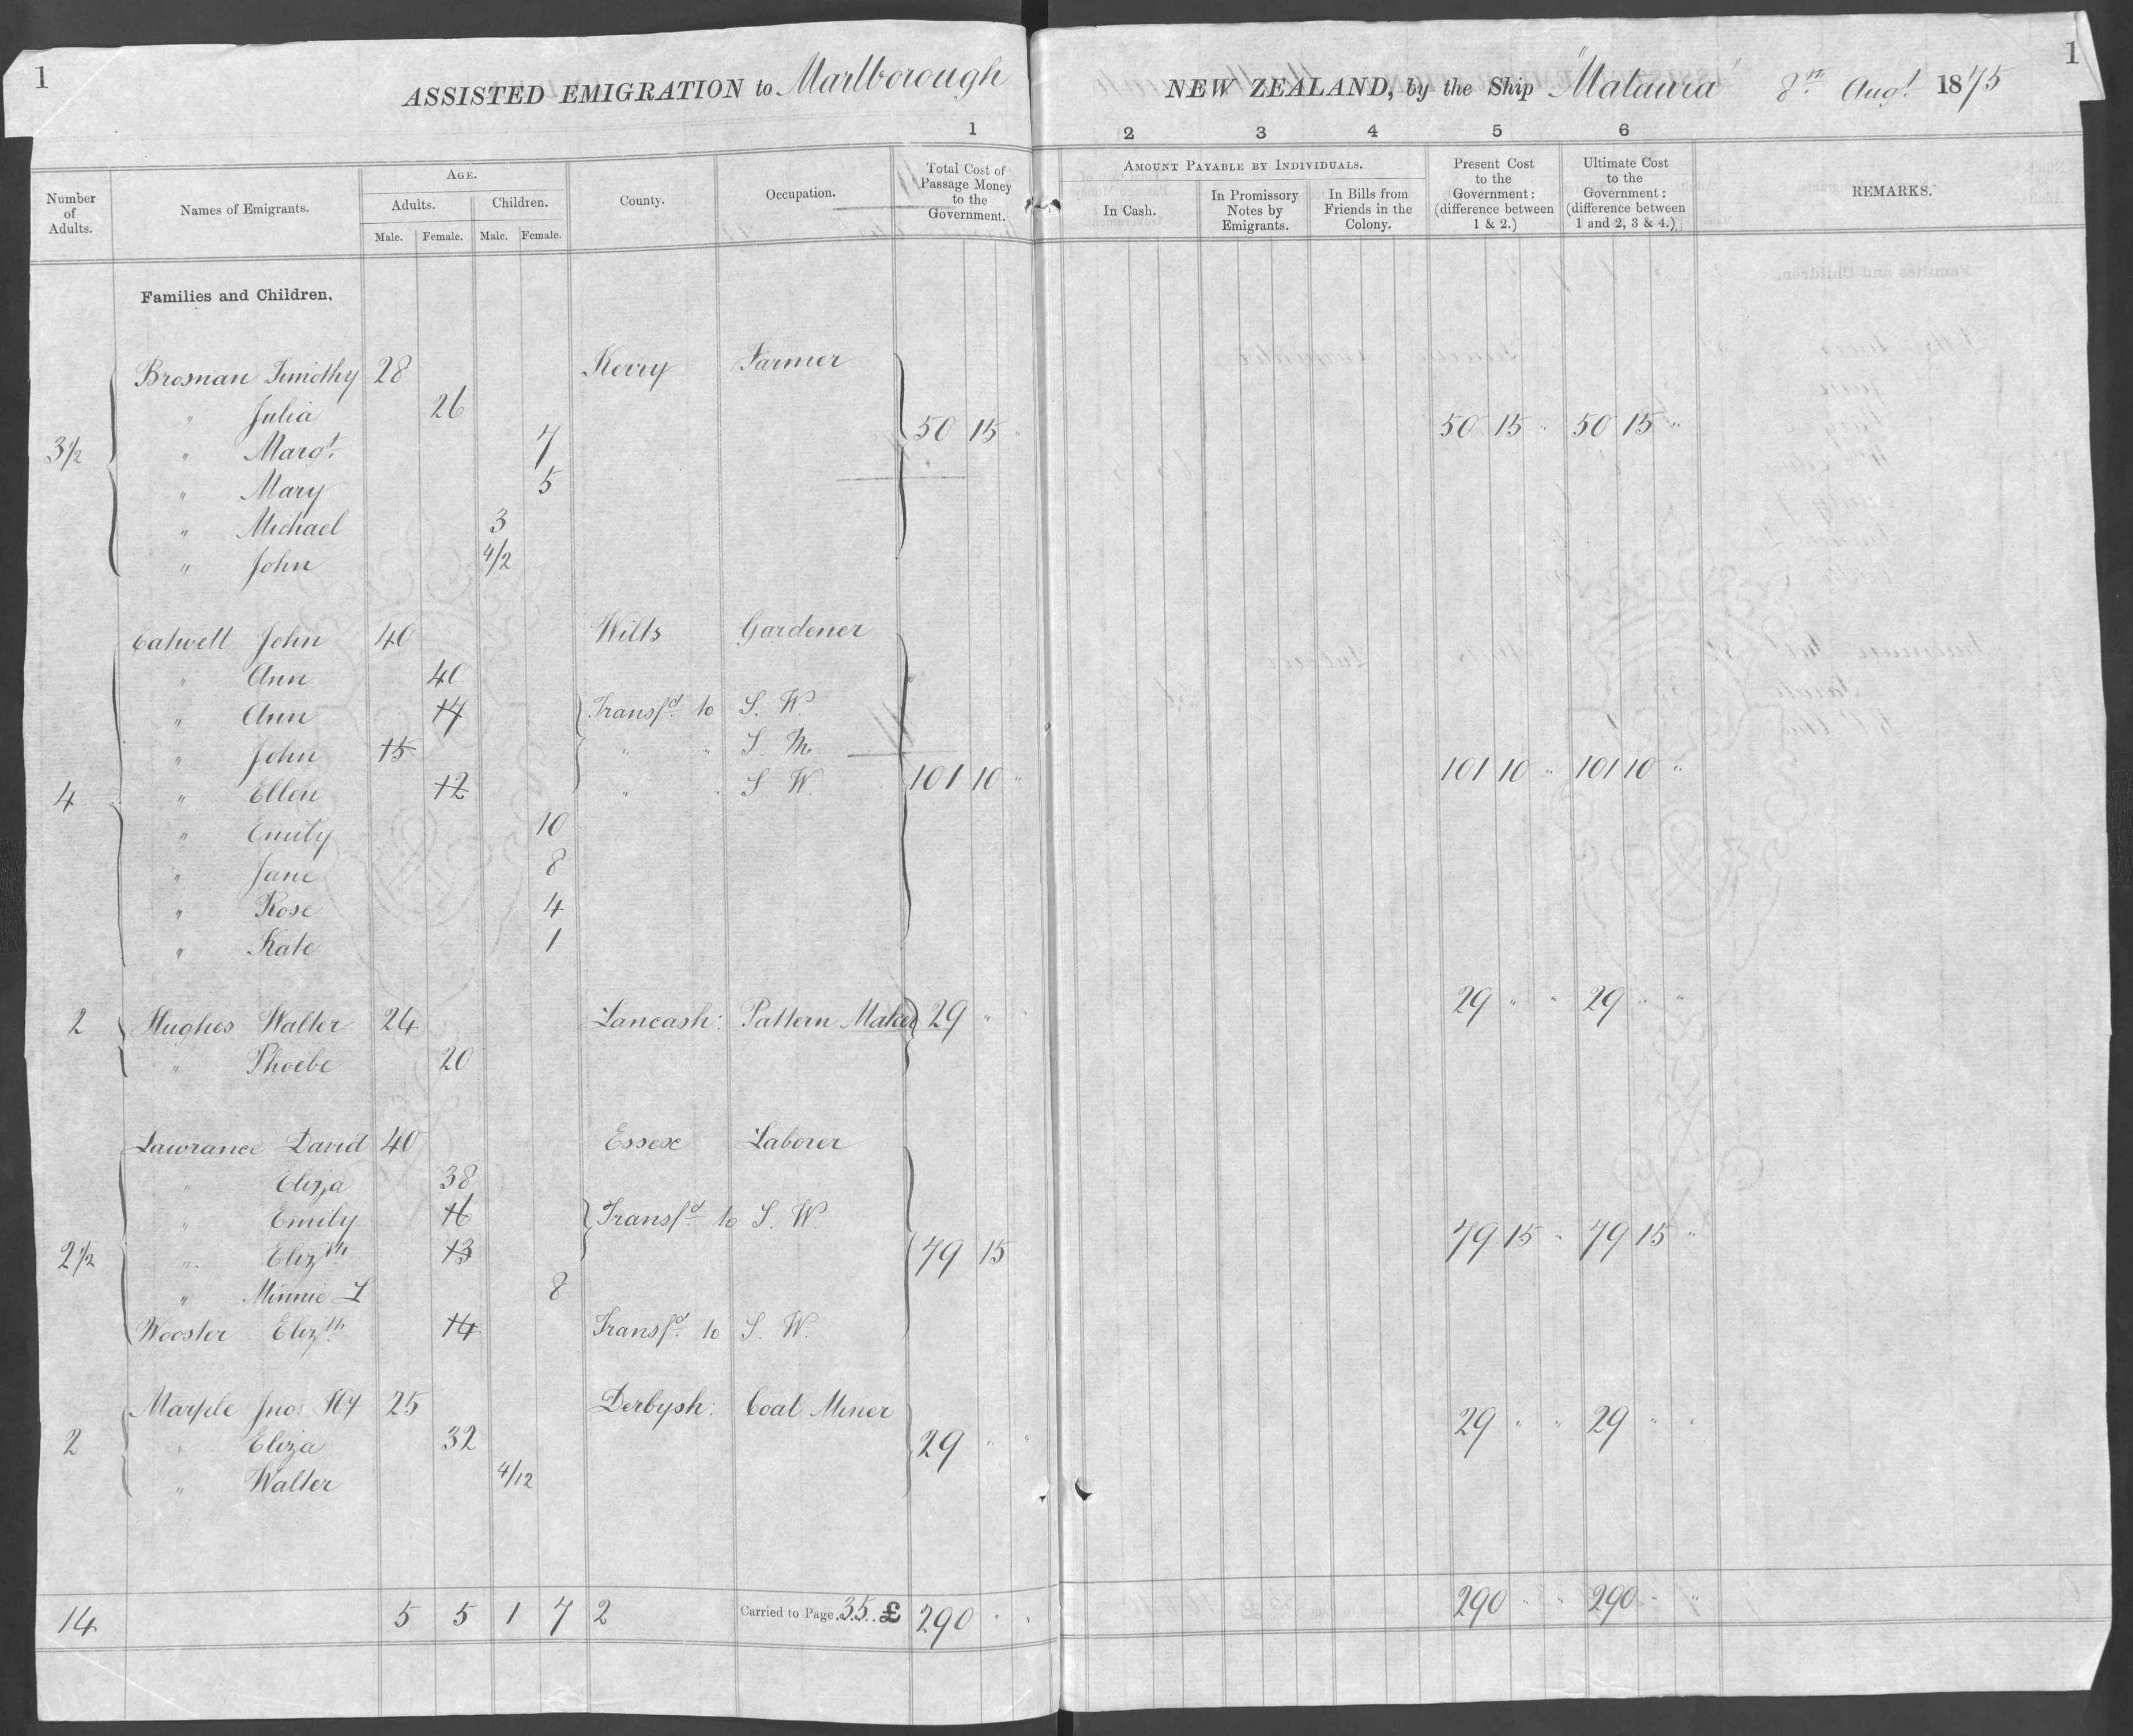 1
ASSISTED EMIGRATION to Marlborough NEW ZEALAND, by the Ship "Mataura" 8th Augt. 1875
1
1 2 3 4 5 6
Number of Adults. Names of Emigrants. AGE. County. Occupation. Total Cost of Passage Money to the Government. AMOUNT PAYABLE BY INDIVIDUALS. Present Cost to the Government: (difference between 1 & 2.) Ultimate Cost to the Government: (difference between 1 and 2, 3 & 4.) REMARKS.
Adults. Children. In Cash. In Promissory Notes by Emigrants. In Bills from Friends in the Colony.
Male. Female. Male. Female.
Families and Children.
Brosnan Timothy 28 Kerry Farmer
" Julia 26
3½ " Margt. 7 50 15 " 50 15 " 50 15 "
" Mary 5
" Michael 3
" John 4/2
Calwell John 40 Wilts Gardener
" Ann 40
" Ann 17 Transfd. to S. W.
" John 15 " " S M.
4 " Ellen 12 " " S W. 101 10 " 101 10 " 101 10 "
" Emily 10
" Jane 8
" Rose 4
" Kate 1
2 Hughes Walter 24 Lancash: Pattern Maker 29 " 29 " " 29 " "
" Phoebe 20
Lawrance David 40 Essex Laborer
" Eliza 38
" Emily 16 Transfd. to S. W.
2½ " Elizth. 13 79 15 79 15 " 79 15 "
" Minnie L 8
Wooster Elizth. 14 Transfd. to S. W.
Marple Jno: Hy 25 Derbysh: Coal Miner
2 " Eliza 32 29 " " 29 " " 29 " "
" Walter 4/12
14 5 5 1 7 2 Carried to Page 35 £ 290 " " 290 " " 290 " "